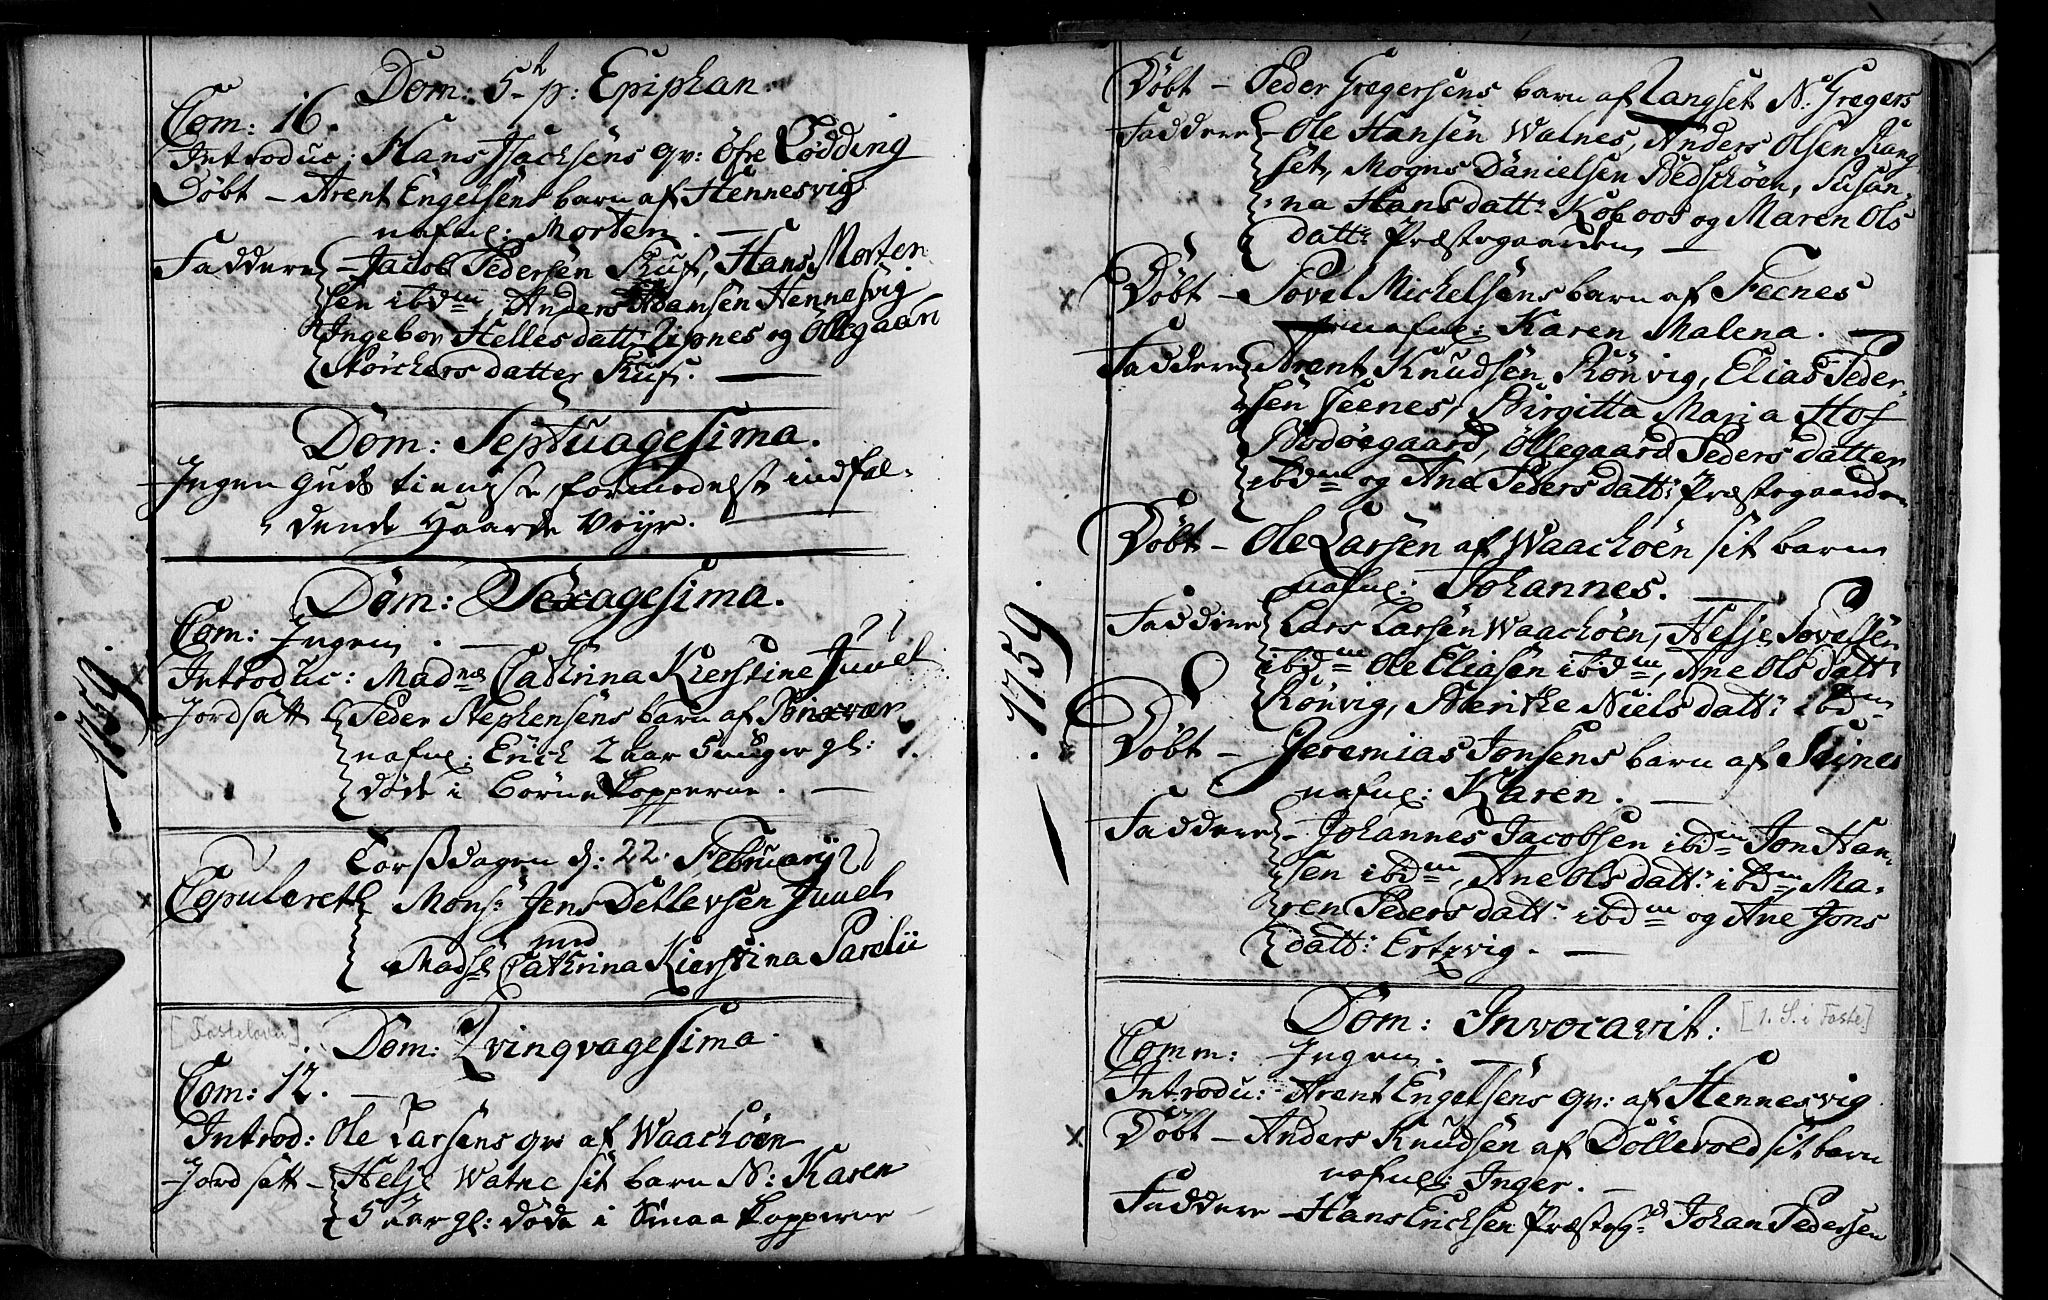 Dom: 5te p: Epiphan:
Com: 16.
Introduc: Hans Jsachsens qv: Öfre Lödding
Döbt – Arent Engelsens barn af Hennesvig
nafnl: Morten. —
Faddere – Jacob Pedersen Kuf, Hans Morten
sen ibdm Anders Hansen Hennesvig
Ingebor Hellesdatt: Lipnes og Öllegaard
Störchersdatter Kuf. —
Dom: Septuagesima.
Ingen Guds tienniste, formedelst indfal-
dende Haarde Veyr. —
Dom: Sexagesima.
Com: Ingen. —
Introduc: Madme Cathrina Kierstine Juuel
Jordsatt Peder Stephensens barn af
nafnl: Erich 2 aar 5 uger gl:
døde i Börnekopperne. —
1759.
Torsdagen d: 22 Februarij
Copulereth Mons: Jens Detlevsen Juuel
med
Madse Cathrina Kierstina Parelii
[Fastelavn]
Dom: Qvinqvagesima.
Com: 12. —
Introd: Ole Larsens qv: af Waachöen
Jordsatt – Helje Watne sit barn N: Karen
5 aar gl: døde i Smaa kopperne
Döbt – Peder Gregersens barn af Langset N: Gregers
Faddere – Ole Hansen Walnes, Anders Olsen Lang
set, Mogns Danielsen Bedschöen, Susan-
na Hansdatt: Koboos og Maren Ols
datt: Præstegaarden —
Döbt – Povel Michelsens barn af Feenes
nafnl: Karen Malena. —
Faddere Arent Knudsen Rönvig, Elias Peder-
sen Feenes, Birgitta Maria Hof
Bodöegaard, Öllegaard Pedersdatter
ibdm og Ane Pedersdatt: Præstegaarden
Döbt – Ole Larsen af Waachöen sit barn
nafnl: Johannes. —
Faddere Lars Larsen Waachöen, Helje Povelsen
ibdm Ole Eliasen ibidm, Ane Olsdatt:
Rönvig, Beritke Nielsdatt: ibdm
1759
Döbt – Jeremias Jonsens barn af Seines
nafnl: Karen. —
Faddere – Johannes Jacobsen ibdm Jon Han-
sen ibdm, Ane Olsdatt: ibdm Ma-
ren Pedersdatt: ibdm og Ane Jons
datt: Ertzvig. —
Dom: Invocavit: [1. S. i Faste]
Comm: Ingen. —
Introdu: – Arent Engelsens qv: af Hennesvig
Döbt – Anders Knudsen af Döllevold sit barn
nafnl: Inger. —
Faddere – Hans Erichsen Præsteg: Johan Pedersen